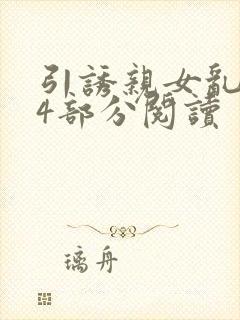 引誘親女亂
4部分閱讀
璃舟